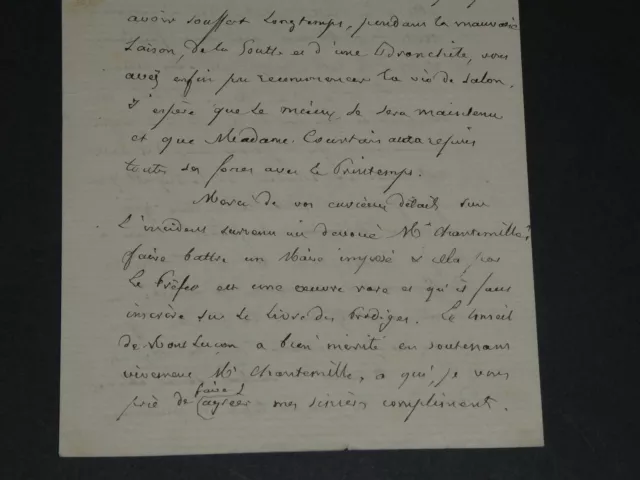 avoir souffert Longtemps, pendant la mauvaise
Saison, de la Goutte et d'une Bronchite, vous
avez enfin pu recommencer la vie de Salon.
J'espère que le mieux se sera maintenu
et que Madame Courtais aura repris
toutes ses forces avec le Printemps.
Merci de vos curieux détails sur
l'incident survenu au dévoué Mr Chantemille,
faire battre un Maire imposé par
Le Préfet est une oeuvre rare et qu'il faut
inscrire sur le Livre des Prodiges. Le Conseil
de MontLuçon a bien mérité en soutenant
vivement Mr Chantemille, à qui, je vous
prie de faire agréer mes sincères compliments.